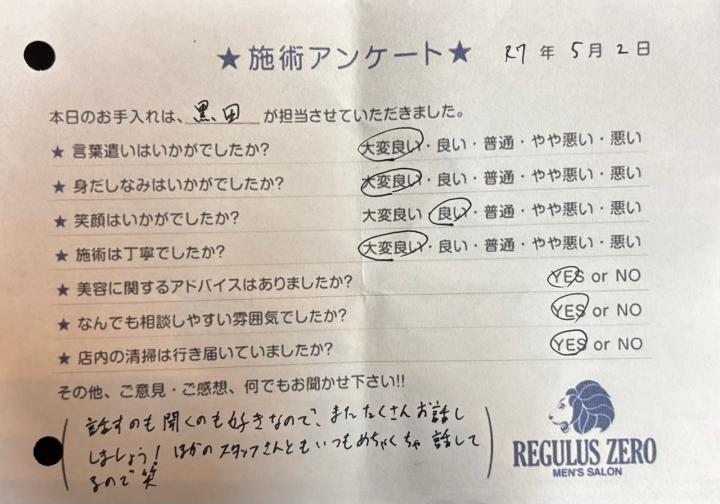 ★施術アンケート★ R7年5月2日
本日のお手入れは、黒田が担当させていただきました。
★ 言葉遣いはいかがでしたか? 大変良い・良い・普通・やや悪い・悪い
★ 身だしなみはいかがでしたか? 大変良い・良い・普通・やや悪い・悪い
★ 笑顔はいかがでしたか? 大変良い・良い・普通・やや悪い・悪い
★ 施術は丁寧でしたか? 大変良い・良い・普通・やや悪い・悪い
★ 美容に関するアドバイスはありましたか? YES or NO
★ なんでも相談しやすい雰囲気でしたか? YES or NO
★ 店内の清掃は行き届いていましたか? YES or NO
その他、ご意見・ご感想、何でもお聞かせ下さい!!
話すのも聞くのも好きなので、またたくさんお話し
しましょう! ほかのスタッフさんともいつもめちゃくちゃ話して
るので笑
REGULUS ZERO
MEN'S SALON